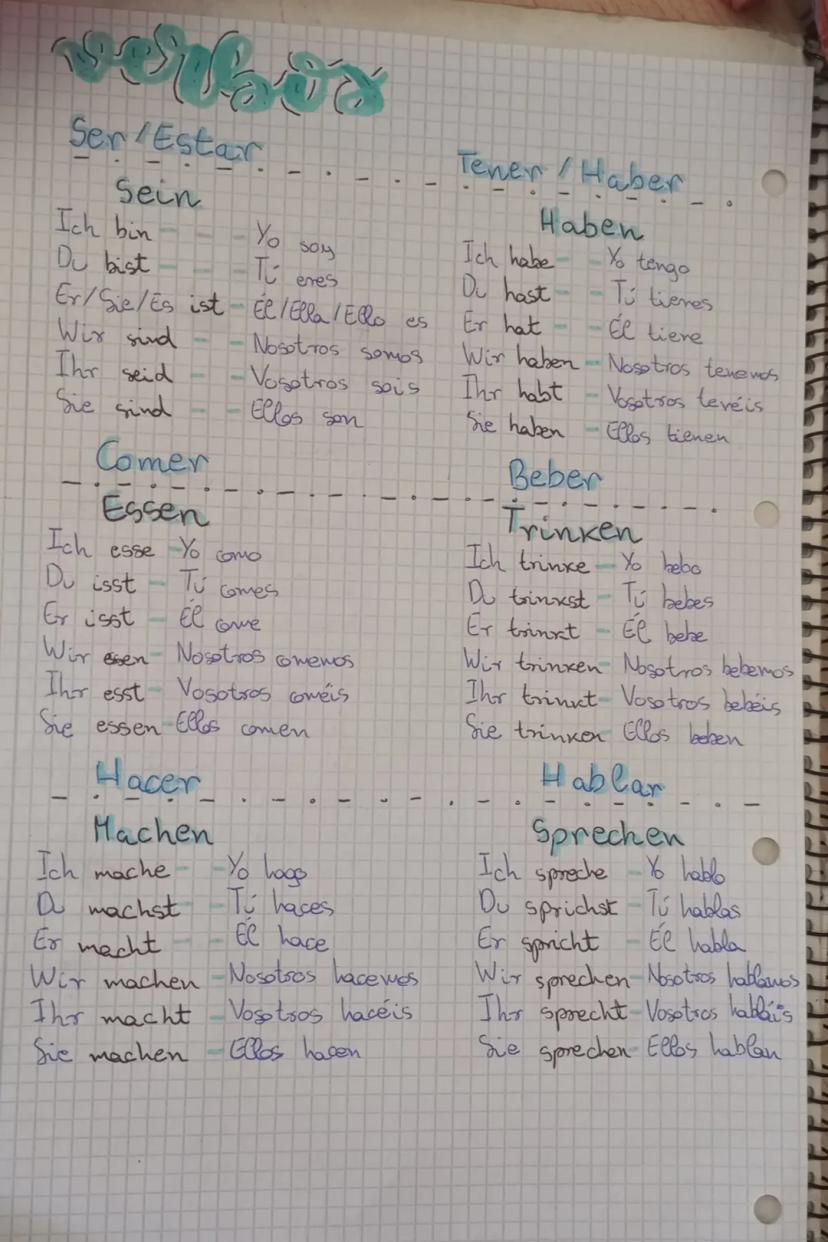 Verbos
Ser/Estar
Sein
Ich bin - - Yo soy
Du bist - - Tú eres
Er/Sie/Es ist - Él/Ella/Ello es
Wir sind - - Nosotros somos
Ihr seid - - Vosotros sois
Sie sind - - Ellos son
Tener/Haber
Haben
Ich habe - - Yo tengo
Du hast - - Tú tienes
Er hat - - Él tiene
Wir haben - Nosotros tenemos
Ihr habt - Vosotros tevéis
Sie haben - Ellos tienen
Comer
Essen
Ich esse - Yo como
Du isst - Tú comes
Er isst - Él come
Wir essen - Nosotros comemos
Ihr esst - Vosotros coméis
Sie essen - Ellos comen
Beber
Trinken
Ich trinke - Yo bebo
Du trinkst - Tú bebes
Er trinkt - Él bebe
Wir trinken - Nosotros bebemos
Ihr trinkt - Vosotros bebéis
Sie trinken Ellos beben
Hacer
Machen
Ich mache - - Yo hago
Du machst - Tú haces
Er macht - - Él hace
Wir machen - Nosotros hacemos
Ihr macht - Vosotros hacéis
Sie machen - Ellos hacen
Hablar
Sprechen
Ich spreche - Yo hablo
Du sprichst - Tú hablas
Er spricht - Él habla
Wir sprechen - Nosotros hablamos
Ihr sprecht - Vosotros habláis
Sie sprechen - Ellos hablan